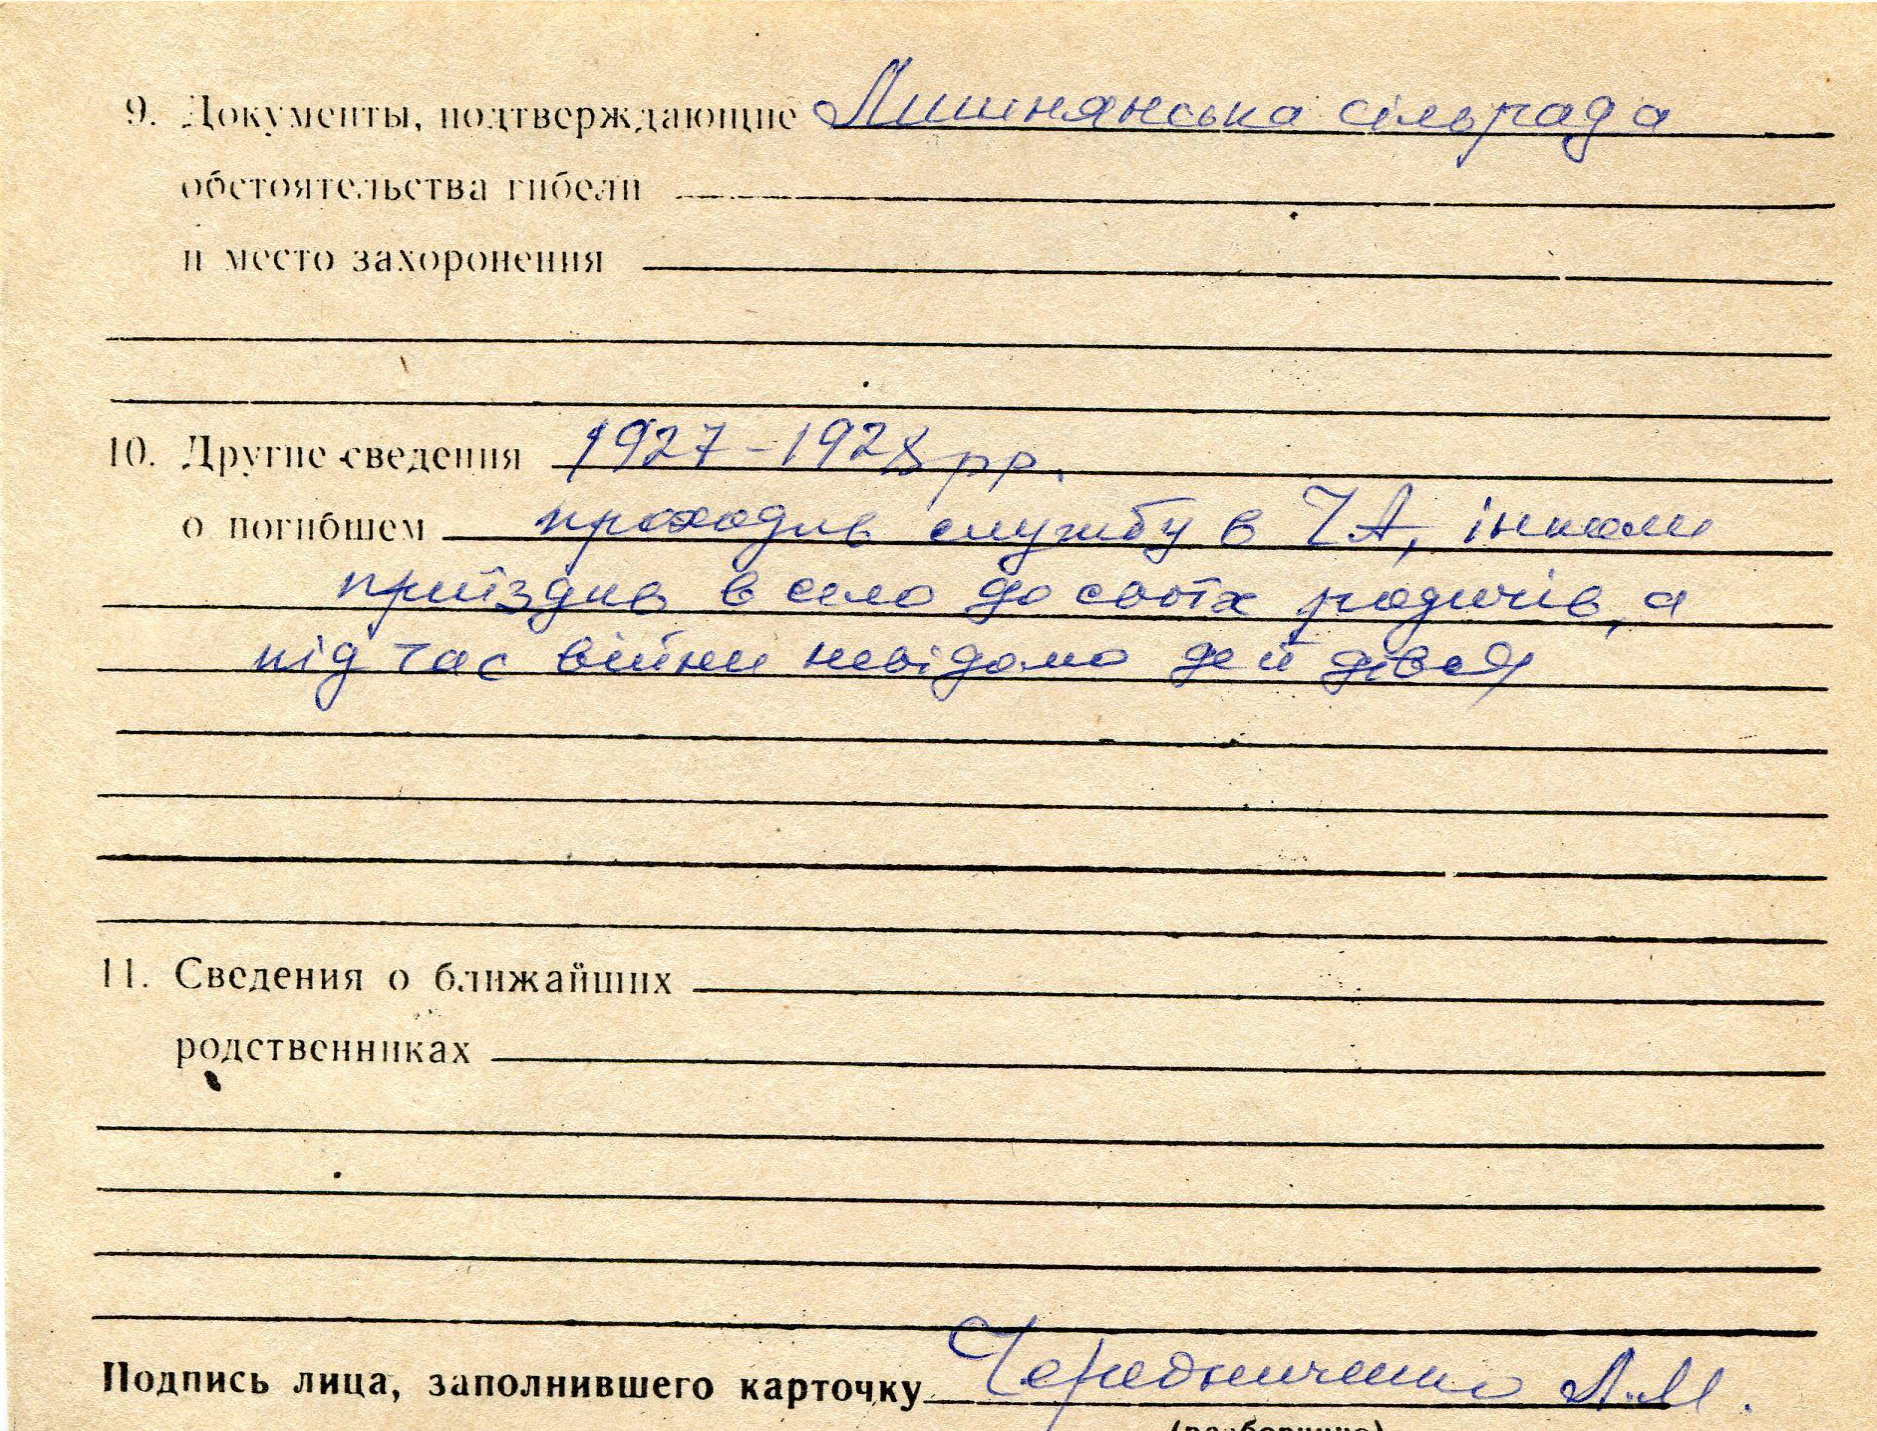 9. Документы, подтверждающие Лишнянська сільрада
обстоятельства гибели
и место захоронения
10. Другие сведения 1927-1928 рр.
о погибшем проходив службу в ЧА, інколи
приїздив в село до своїх родичів, а
під час війни невідомо де й дівся
11. Сведения о ближайших
родственниках
Подпись лица, заполнившего карточку Чередниченко А.М.
(разборчиво)